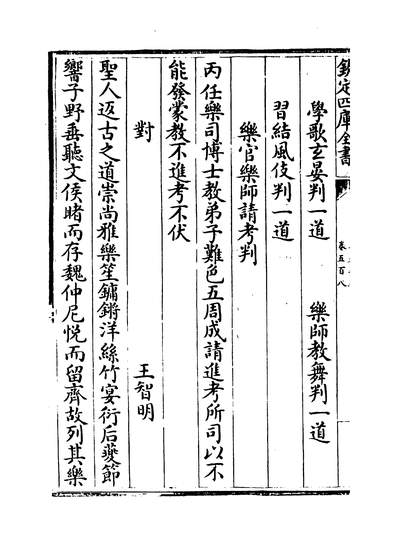 欽定四庫全書
卷五百八
學歌玄晏判一道 樂師教舞判一道
習結風伎判一道
樂官樂師請考判
丙任樂司博士教弟子難色五周成請進考所司以不
能發蒙教不進考不伏
對 王智明
聖人返古之道崇尚雅樂笙鏞鏘洋絲竹宴衎后夔節
響子野垂聽文侯睹而存魏仲尼悅而留齊故列其樂